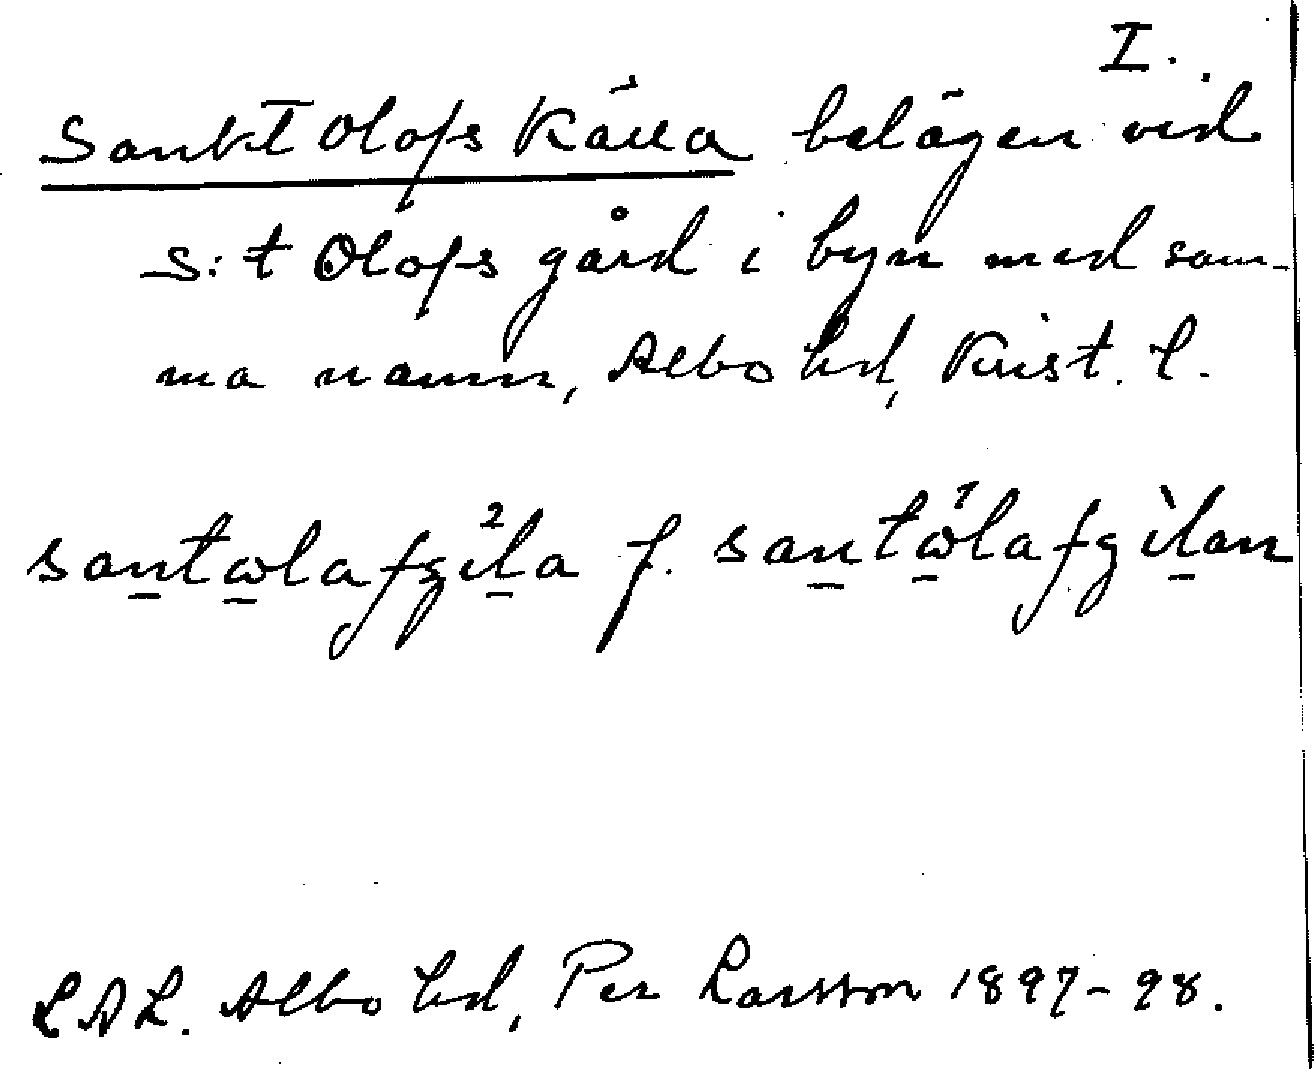 I.
Sankt Olofs Källa belägen vid
S:t Olofs gård i byn med sam-
ma namn, Albo hd, Krist. l.
santωlafgila f. santωlafgilan
LAL. Albo hd, Per Larsson 1897-98.